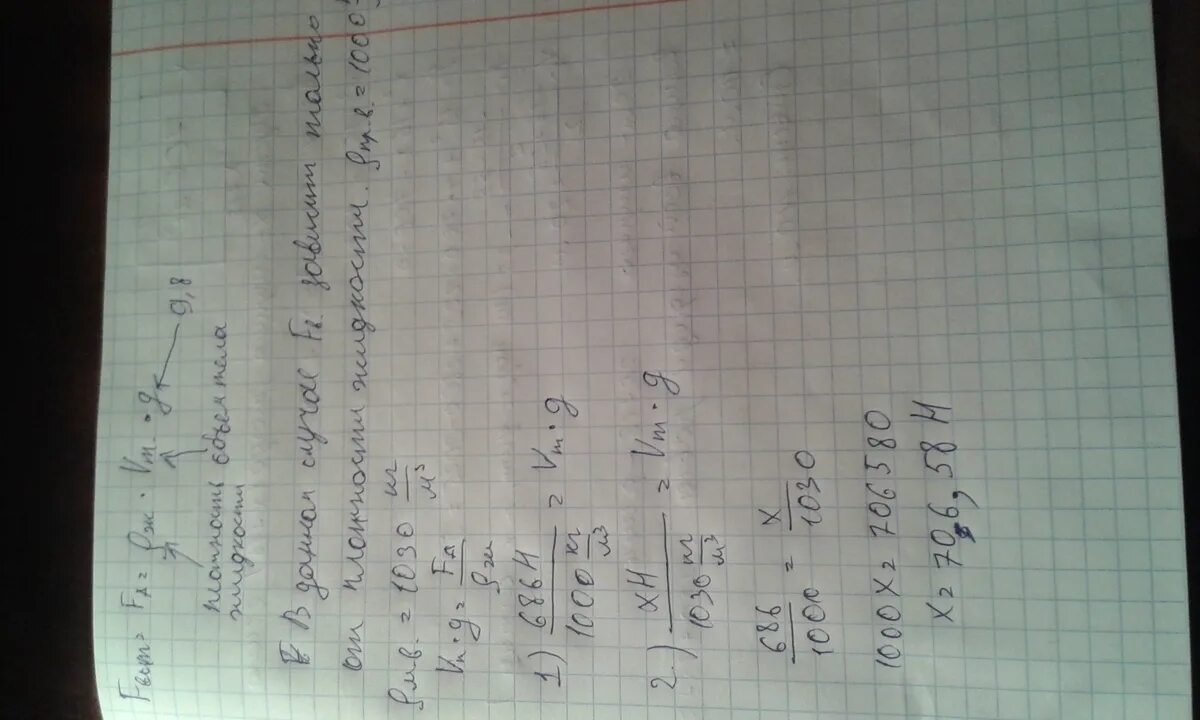 Fвыт = Fд = ρж · Vт · g
плотность жидкости
объем тела
9,8
В данном случае Fв зависит только
от плотности жидкости. ρпр.в. = 1000
ρм.в. = 1030 кг/м³
Vт · g = Fд/ρж
1) 686Н / 1000 кг/м³ = Vт · g
2) хН / 1030 кг/м³ = Vт · g
686/1000 = х/1030
1000х = 706580
х = 706,58 Н